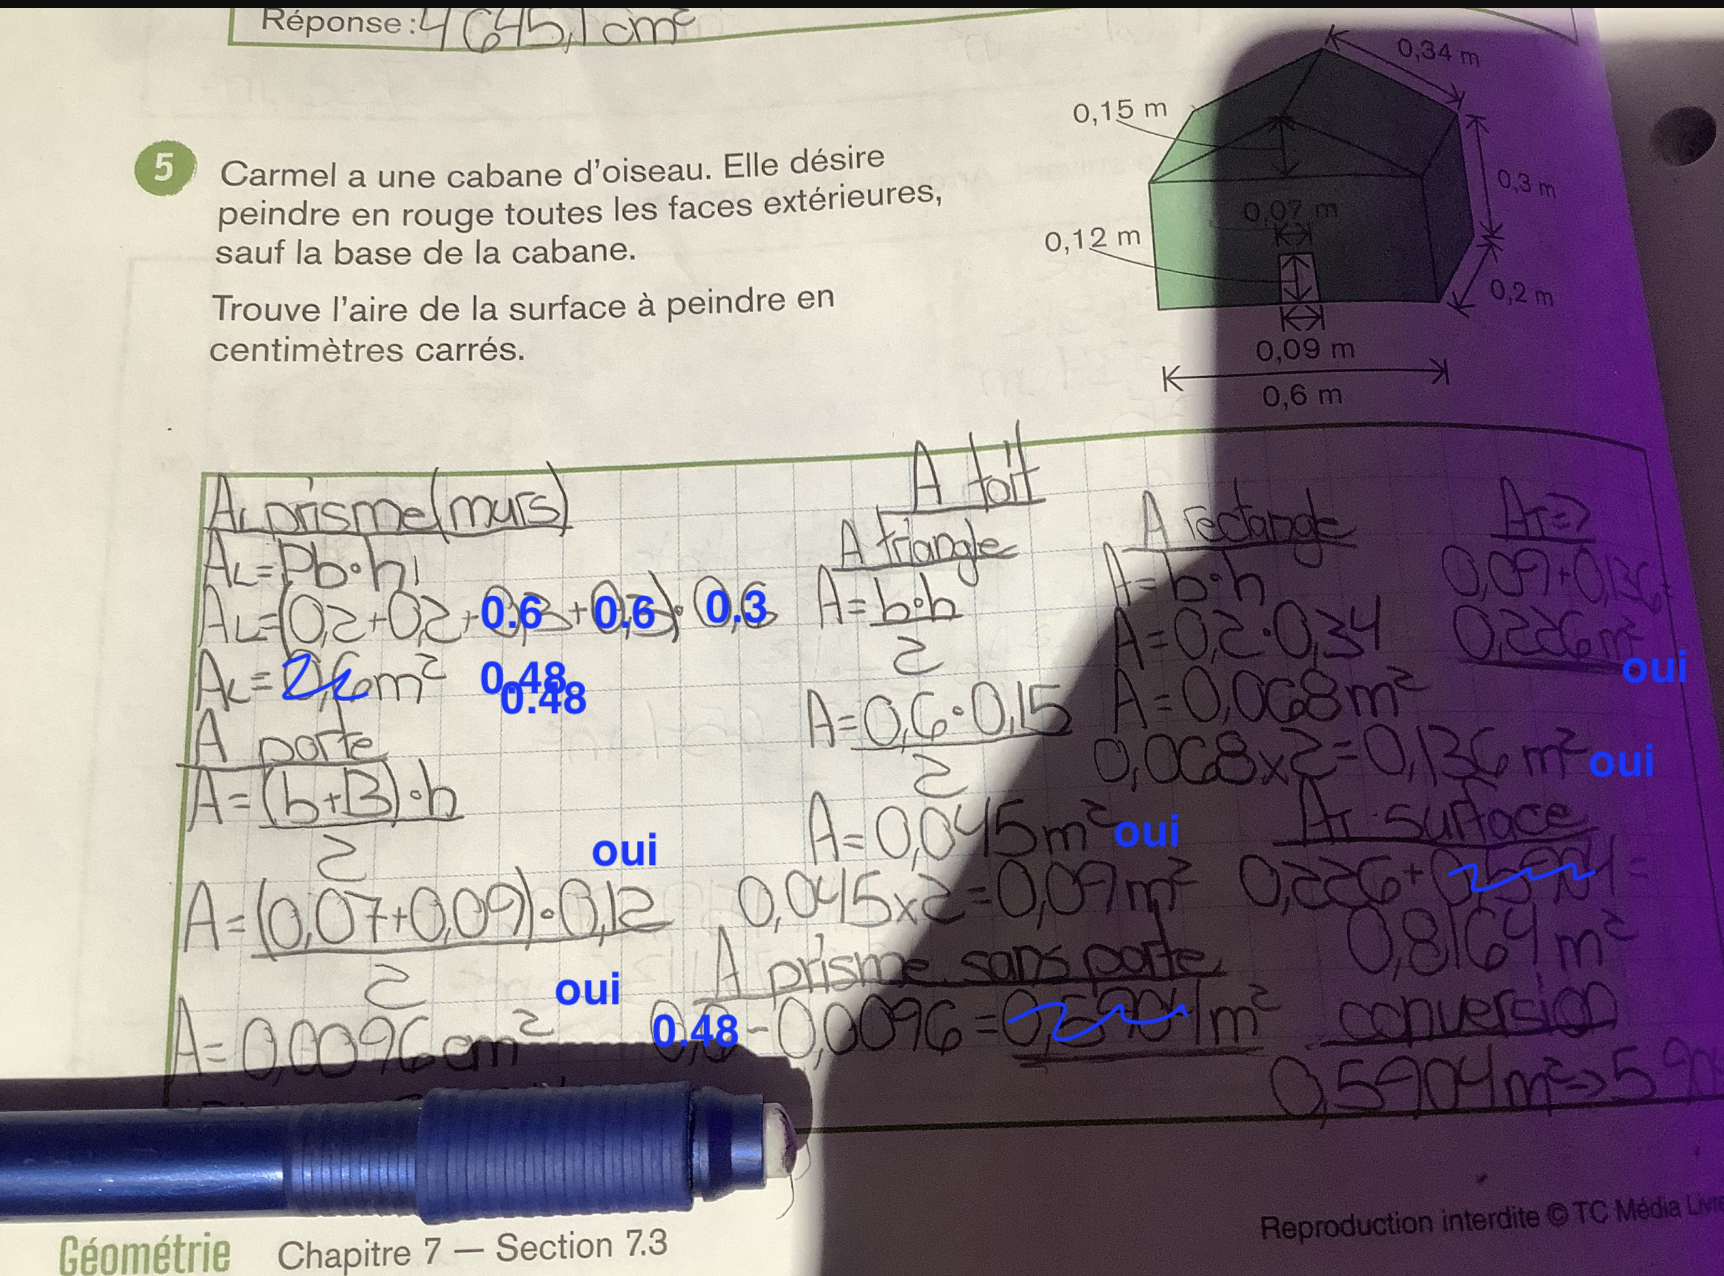 Réponse : 4645,1 cm²
5 Carmel a une cabane d'oiseau. Elle désire
peindre en rouge toutes les faces extérieures,
sauf la base de la cabane.
Trouve l'aire de la surface à peindre en
centimètres carrés.
0,34 m
0,15 m
0,3 m
0,07 m
0,12 m
0,2 m
0,09 m
0,6 m
AL prisme (murs)
AL = Pb·h
AL = (0,2+0,2+0.6+0.6)·0.3
AL = m² 0.48
0.48
A porte
A = (b+B)·h
2
oui
A = (0,07+0,09)·0,12
2
oui
A = 0,0096 cm²
A toit
A triangle
A = b·h
2
A = 0,6·0,15
2
A = 0,045 m² oui
0,045x2 = 0,09 m²
A prisme sans porte
0.48 - 0,0096 = 0,5904 m²
A rectangle
A = b·h
A = 0,2·0,34
A = 0,068 m²
0,068x2 = 0,136 m² oui
AT =>
0,09+0,136=
0,226 m²
oui
AT surface
0,226+0,5904=
0,8164 m²
conversion
0,5904 m² → 590
Géométrie Chapitre 7 — Section 7.3
Reproduction interdite © TC Média